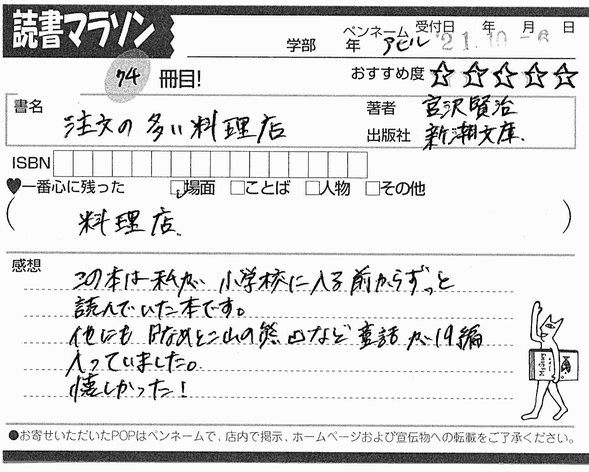 読書マラソン
学部 年 ペンネーム アビル 受付日 年 月 日
'21.10.-6
74 冊目! おすすめ度 ☆☆☆☆☆
書名 注文の多い料理店
著者 宮沢賢治
出版社 新潮文庫.
ISBN
♥一番心に残った □場面 □ことば □人物 □その他
( 料理店. )
感想
この本は私が小学校に入る前からずっと
読んでいた本です。
他にも「なめとこ山の熊」など童話が19編
入っていました。
懐しかった!
●お寄せいただいたPOPはペンネームで、店内で掲示、ホームページおよび宣伝物への転載をご了承ください。